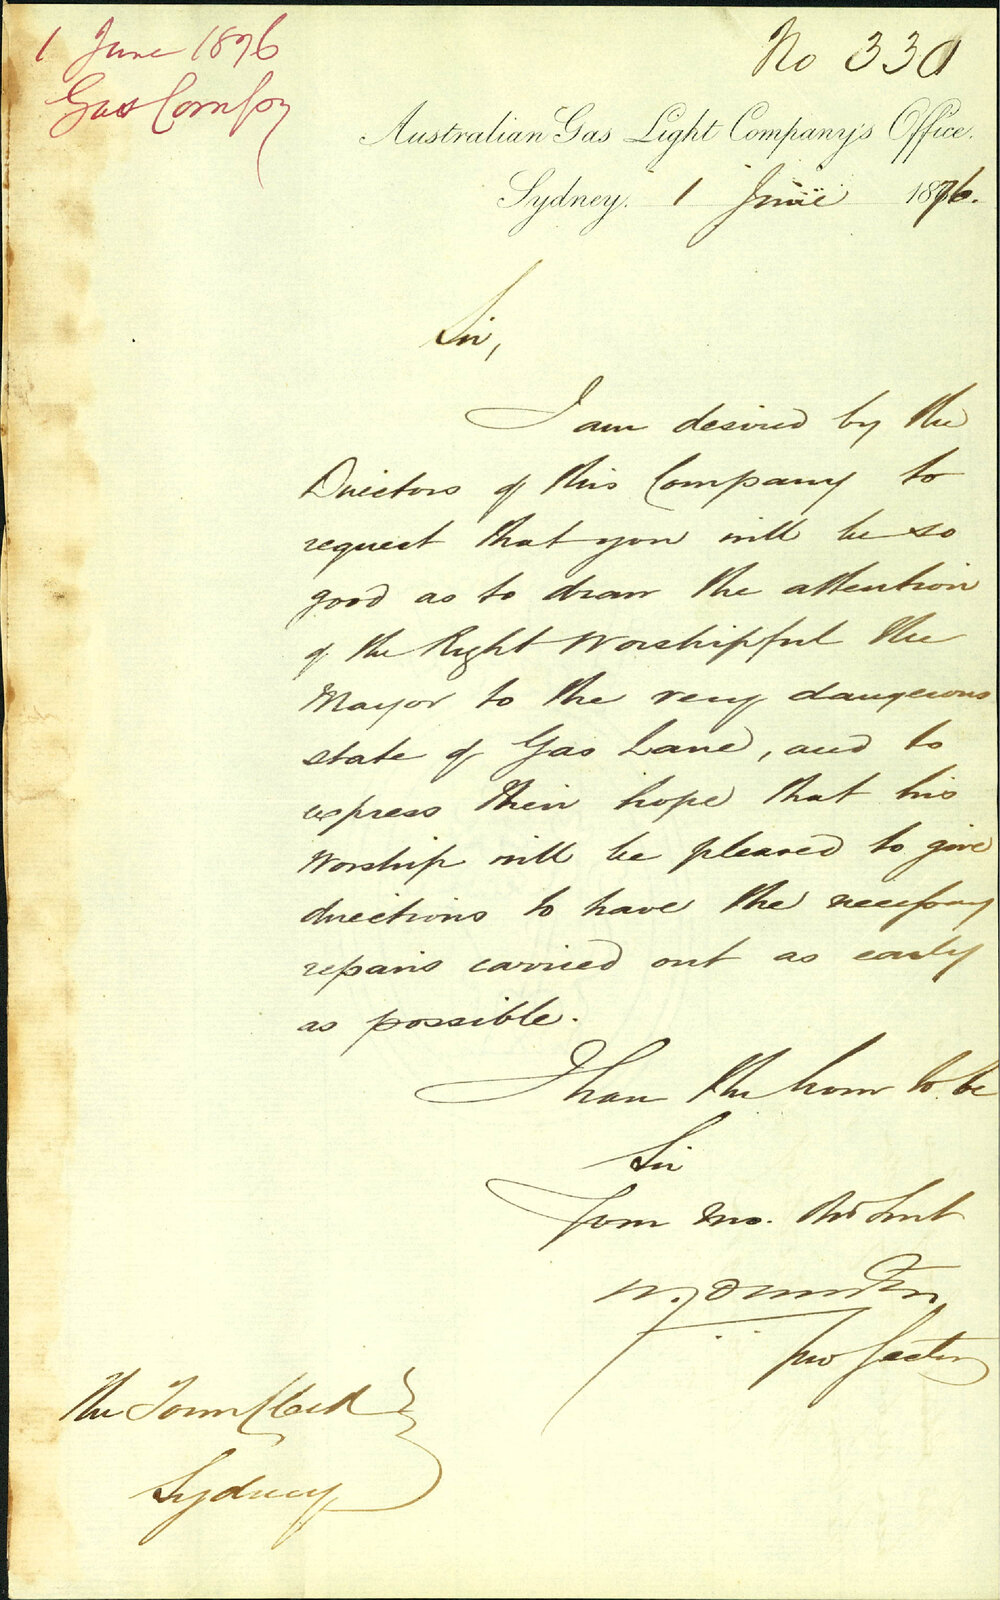 1 June 1876
Gas Company
No 330
Australian Gas Light Company's Office.
Sydney. 1 June 1876.
Sir,
I am desired by the
Directors of this Company to
request that you will be so
good as to draw the attention
of the Right Worshipful the
Mayor to the very dangerous
state of Gas Lane, and to
express their hope that his
Worship will be pleased to give
directions to have the necessary
repairs carried out as early
as possible.
I have the honor to be
Sir
Your Mo. Obdt Servt
pro Secretary
The Town Clerk
Sydney